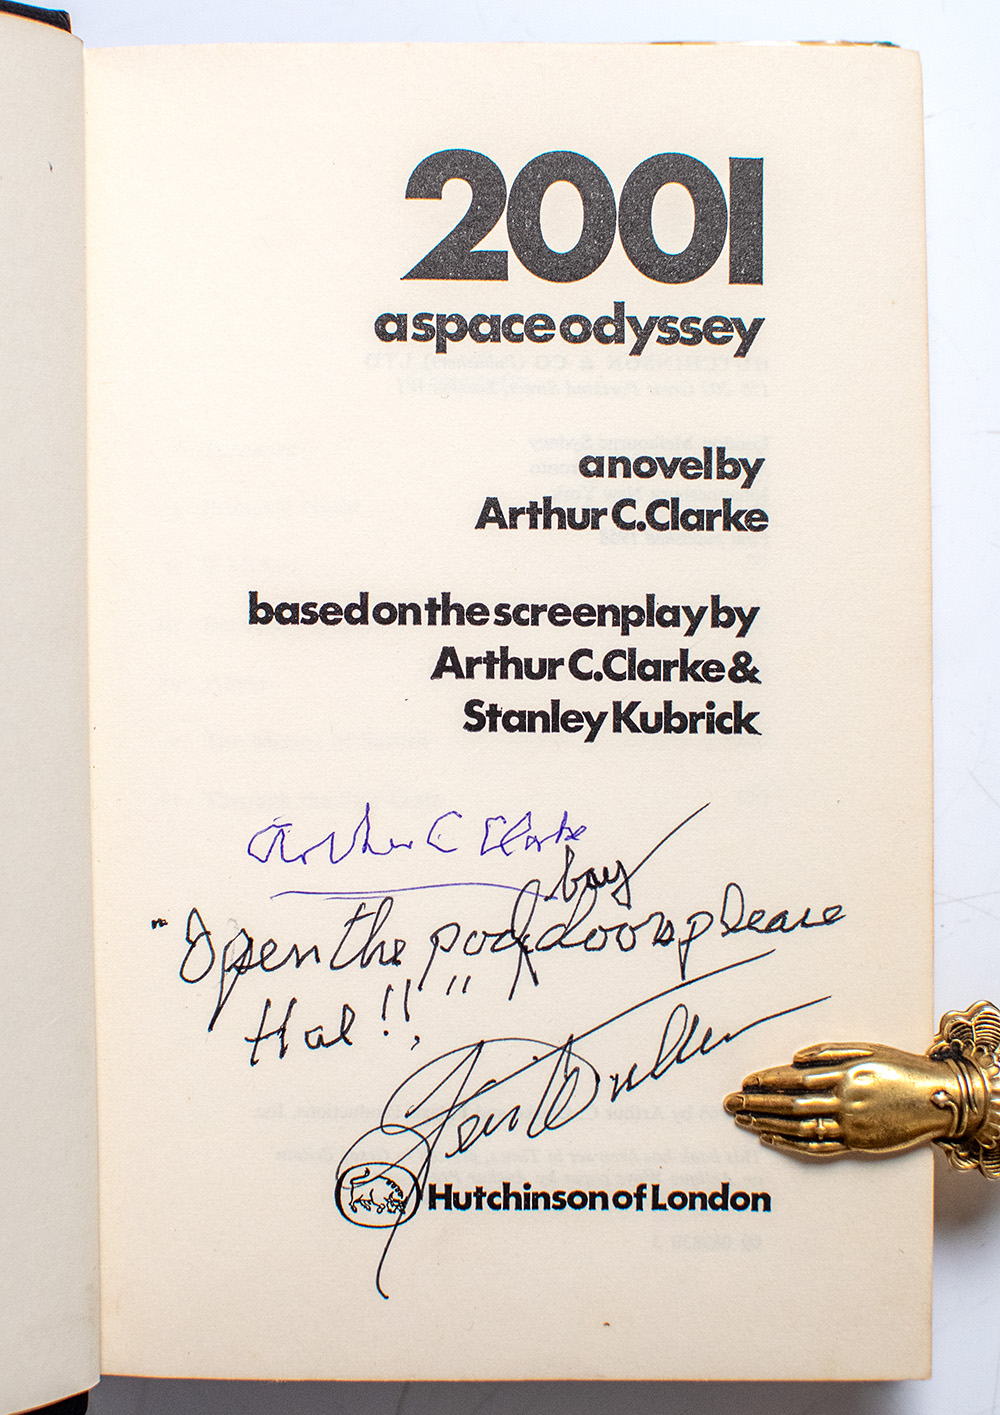 2001
a space odyssey
a novel by
Arthur C. Clarke
based on the screenplay by
Arthur C. Clarke &
Stanley Kubrick
Arthur C Clarke
bay
"Open the pod doors please
Hal!!"
Keir Dullea
Hutchinson of London